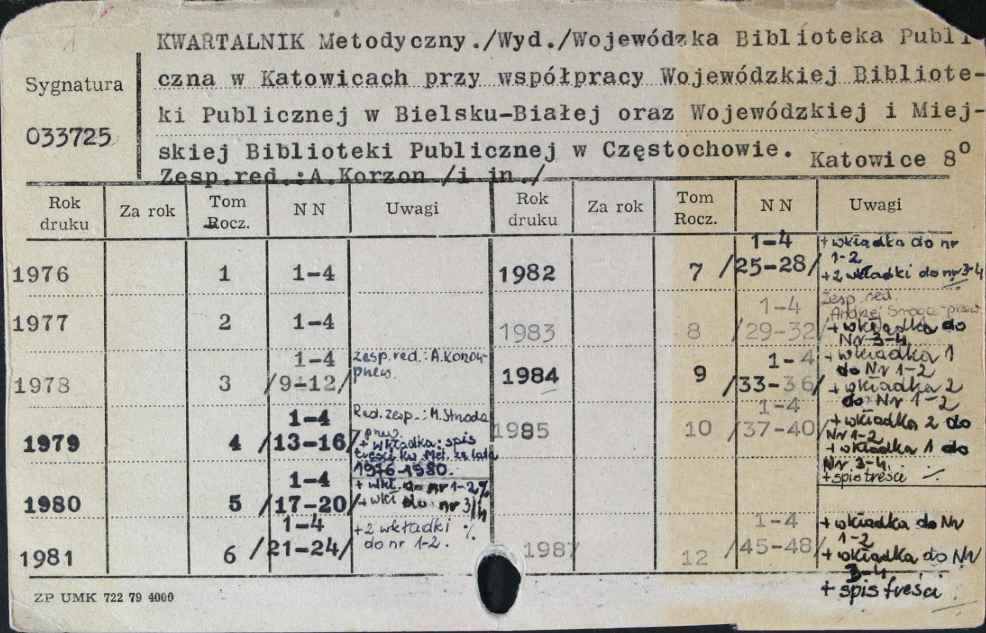 KWARTALNIK Metodyczny./Wyd./Wojewódzka Biblioteka Publi
czna w Katowicach przy współpracy Wojewódzkiej Bibliote-
ki Publicznej w Bielsku-Białej oraz Wojewódzkiej i Miej-
skiej Biblioteki Publicznej w Częstochowie. Katowice 8°
Zesp.red.:A.Korzon /i in./
Sygnatura
033725
Rok druku Za rok Tom Rocz. NN Uwagi Rok druku Za rok Tom Rocz. NN Uwagi
1976 1 1-4
1977 2 1-4
1978 3 1-4 /9-12/ Zesp.red.: A.Konow-
1979 4 1-4 /13-16/ Red. zesp.: M.
+ wkładka: spis
treści Kw. Met. za lata
1976-1980.
1980 5 1-4 /17-20/ + wkł. do nr 1-2 %
+ wkł do nr 3/4
1981 6 1-4 /21-24/ + 2 wkładki %
do nr 1-2.
1982 7 1-4 /25-28/ + wkładka do nr
1-2
+ 2 wkładki do nr 3-4
1983 8 1-4 /29-32/ Zesp. red.
Andrzej
+ wkładka do
Nr 3-4
1984 9 1-4 /33-36/ + wkładka 1
do Nr 1-2
+ wkładka 2
do Nr 1-2
1985 10 1-4 /37-40/ + wkładka 2 do
Nr 1-2
+ wkładka 1 do
Nr 3-4.
+ spis treści %
1987 12 1-4 /45-48/ + wkładka do Nr
1-2
+ wkładka do Nr
3-4
+ spis treści
ZP UMK 722 79 4000